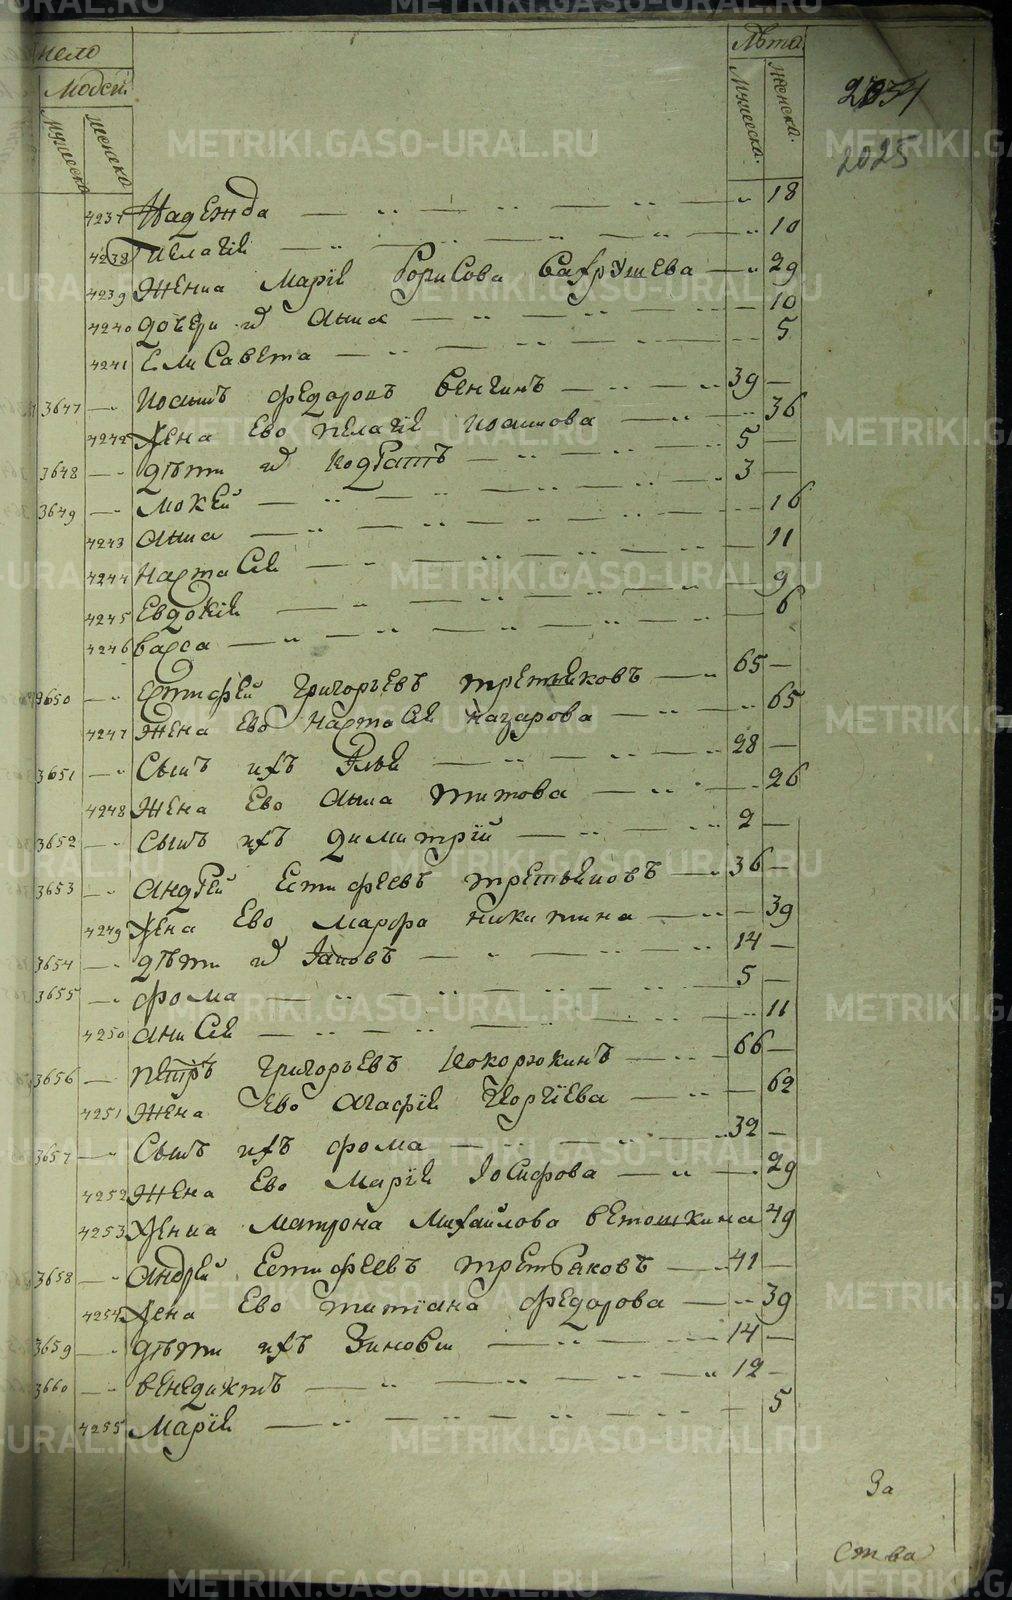 число
Людей
Мужеска
женска
Лѣта
Мужеска.
Женска.
2025
4237 Надежда — 18
4238 Пелагия — 10
4239 Женка Мария Борисова Бахрушева — 29
4240 дочери ей Анна — 10
4241 Елисавета — 5
3647 Иоаннъ Федоровъ Венгинъ — 39
4242 Жена Ево Пелагия Иоаннова — 36
3648 дѣти их Кодратъ — 5
3649 Мокей — 3
4243 Анна — 16
4244 Настасия — 11
4245 Евдокия — 9
4246 Васса — 6
3650 Естифей Григорьевъ Третьяковъ — 65
4247 Жена Ево Настасия Назарова — 65
3651 Сынъ ихъ Илья — 28
4248 Жена Ево Анна Титова — 26
3652 Сынъ ихъ Димитрий — 2
3653 Андрей Естифеевъ Третьяковъ — 36
4249 Жена Ево Марфа Никитина — 39
3654 дѣти их Іаковъ — 14
3655 Фома — 5
4250 Анисия — 11
3656 Петръ Григорьевъ Кокорюкинъ — 66
4251 Жена Ево Агафия Георгиева — 62
3657 Сынъ ихъ Фома — 32
4252 Жена Ево Мария Іосифова — 29
4253 Женка Матрона Михайлова Ветошкина 49
3658 Андрей Естифеевъ Третьяковъ — 41
4254 Жена Ево Титиана Федорова — 39
3659 дѣти ихъ Зиновий — 14
3660 Венедиктъ — 12
4255 Мария — 5
За
Ства
METRIKI.GASO-URAL.RU